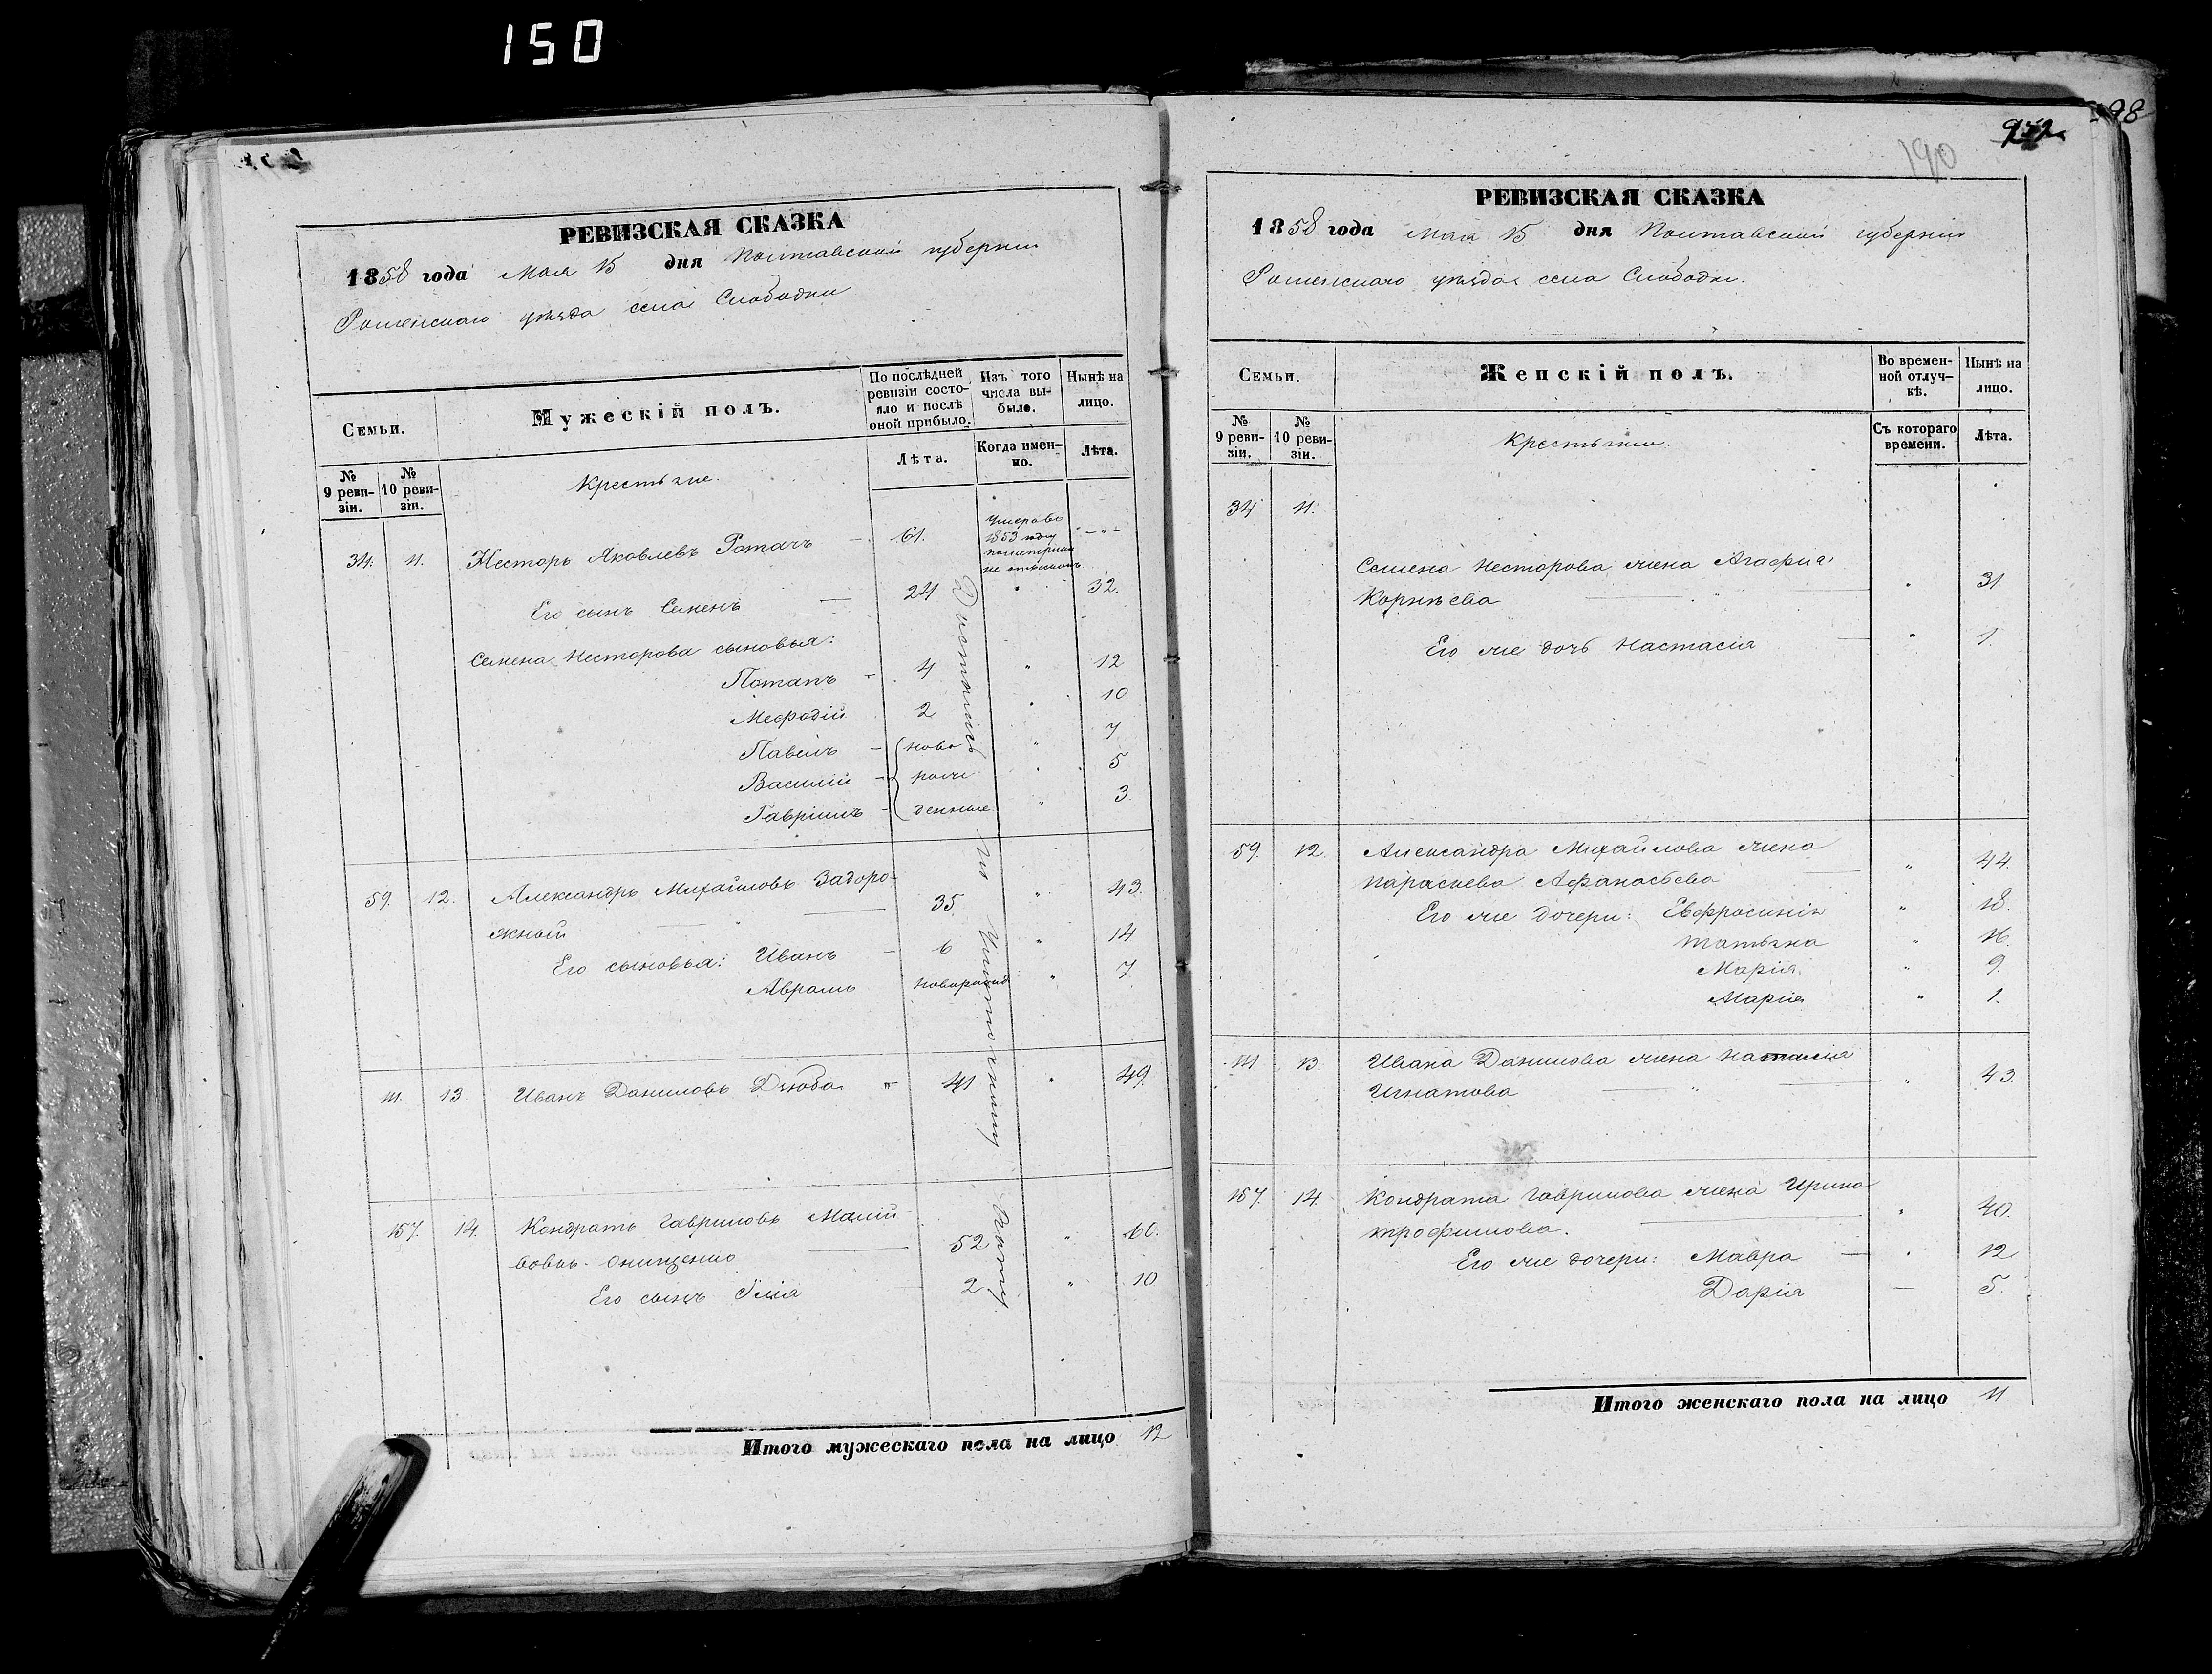 150
РЕВИЗСКАЯ СКАЗКА
1858 года Мая 15 дня Полтавской губернии
Роменскаго уѣзда села Слободки
Семьи.
Мужескій полъ.
По послѣдней ревизіи состояло и послѣ оной прибыло.
Изъ того числа выбыло.
Нынѣ на лицо.
№ 9 ревизіи.
№ 10 ревизіи.
Крестьяне.
Лѣта.
Когда именно.
Лѣта.
34. 11. Несторъ Яковлевъ Ротачъ 61. умеръ въ 1853 году
Его сынъ Семенъ 24 " 32.
Семена Несторова сыновья:
Потапъ 4 " 12
Мефодій 2 " 10
Павелъ ново " 7
Василій рож " 5
Гавріилъ денные " 3
59. 12. Александръ Михайловъ Задоро-
жный 35 " 43.
Его сыновья: Иванъ 6 " 14
Аврамъ новорожд " 7
111. 13. Иванъ Даниловъ Дзюба 41 " 49.
157. 14. Кондратъ Гавриловъ
Онищенко 52 " 60.
Его сынъ Илія 2 " 10
Итого мужескаго пола на лицо 12
98
190
РЕВИЗСКАЯ СКАЗКА
1858 года Мая 15 дня Полтавской губернии
Роменскаго уѣзда села Слободки.
Семьи.
Женскій полъ.
Во временной отлучкѣ.
Нынѣ на лицо.
№ 9 ревизіи.
№ 10 ревизіи.
Крестьяне.
Съ котораго времени.
Лѣта.
34 11.
Семена Несторова жена Агафія
Корнѣева " 31
Его же дочь Настасія " 1.
59. 12. Александра Михайлова жена
Параскева Афанасьева " 44.
Его же дочери: Евфросинія " 18.
Татьяна " 16.
Марія " 9.
Марія " 1.
111 13. Ивана Данилова жена Наталія
Игнатова " 43.
157. 14. Кондрата Гаврилова жена Ирина
Трофимова. " 40.
Его же дочери: Мавра " 12
Дарія — 5.
Итого женскаго пола на лицо 11